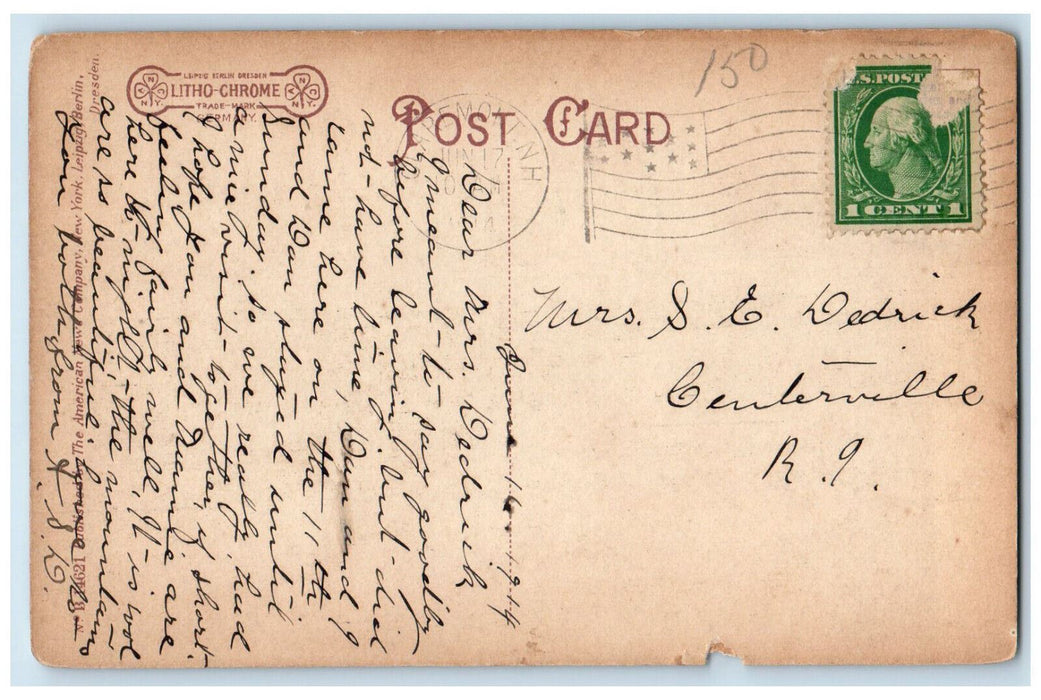 150
LEIPZIG BERLIN DRESDEN
LITHO-CHROME
TRADE-MARK
GERMANY.
POST CARD
U.S. POST
1 CENT 1
JUN 17
NH
Mrs. S. E. Dedrick
Centerville
R. I.
June 16 - 1914
Dear Mrs. Dedrick
I meant - to say goodby
before leaving but - did
not - have time, Dan and I
came here on the 11 th
and Dan stayed until
Sunday. So we really had
a nice visit - together, if short -
I hope you and Frank are
feeling fairly well. It - is cool
here to-night - the mountains
are so beautiful. Love to
you both from A. S. D.
No. B 14621 Published by The American News Company, New York. Leipzig, Berlin,
Dresden.